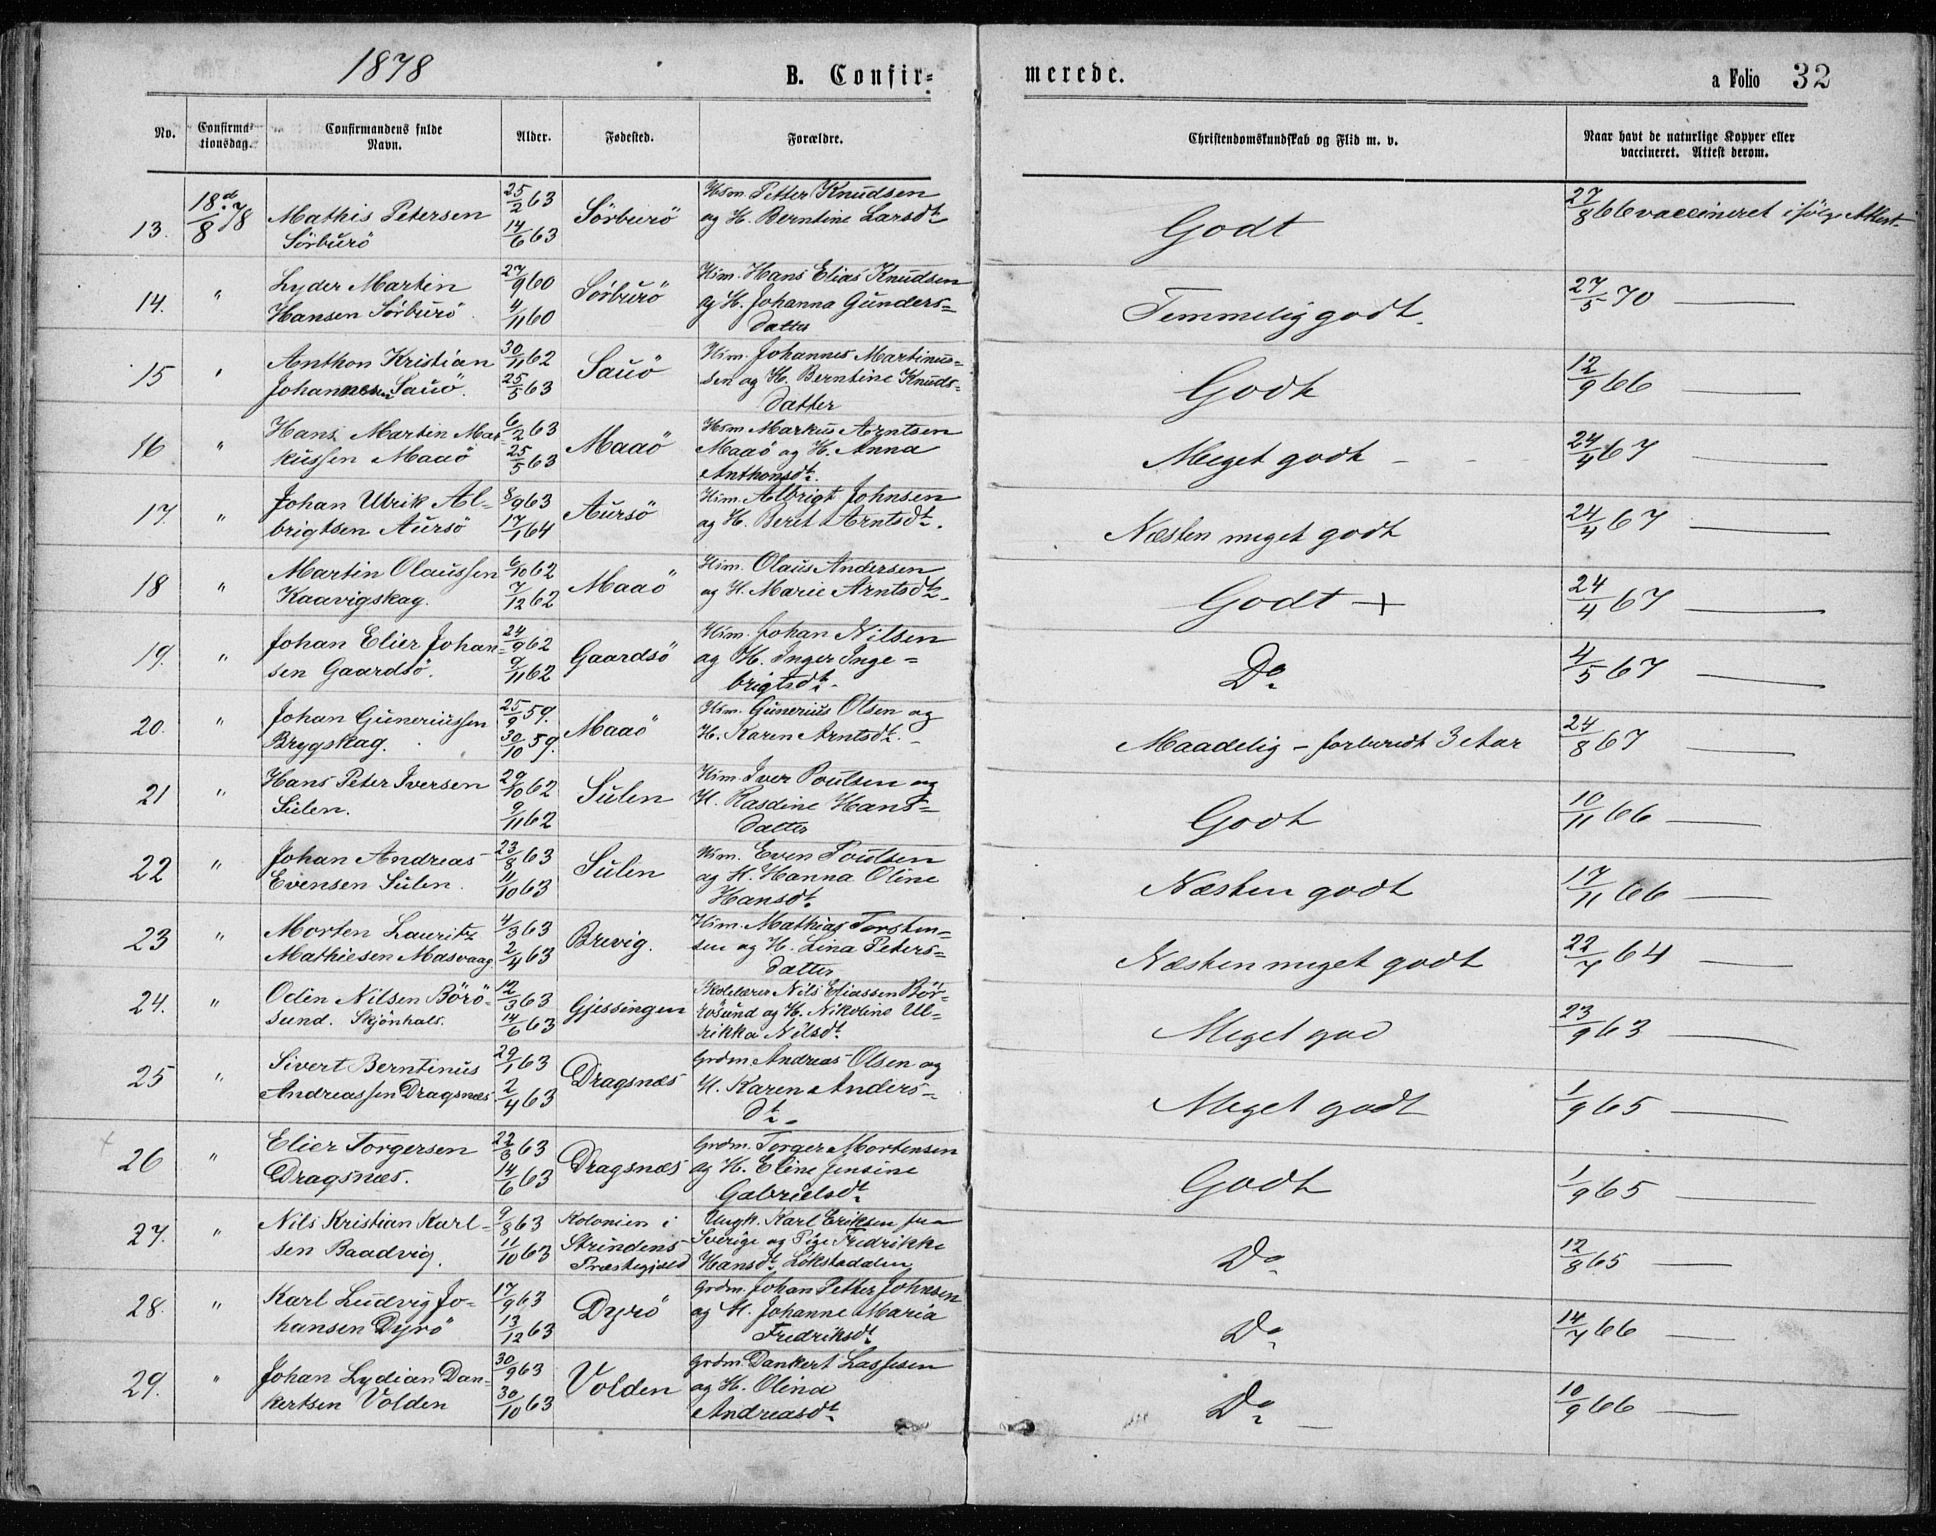 1878
B. Confir=
merede.
a Folio 32
No.
Confirma-
tionsdag.
Confirmandens fulde
Navn.
Alder.
Fødested.
Forældre.
Christendomskundskab og Flid m. v.
Naar havt de naturlige Kopper eller
vaccineret. Attest derom.
13. 18/8 78 Mathis Petersen
Sörburö
25/2 63
14/6 63
Sörburö
Hsm. Petter Knudsen
og H. Berntine Larsdt.
Godt
27/8 66 vaccineret ifølge Attest.
14. " Lyder Martin
Hansen Sörburö.
27/9 60
4/11 60
Sörburö
Hsm. Hans Elias Knudsen
og H. Johanna Gunders=
datter
Temmelig godt.
27/5 70 —
15 " Anthon Kristian
Johannesen Sauö.
30/11 62
25/5 63
Sauö
Hsm. Johannes Martinus=
sen og H. Berntine Knuds=
datter
Godt
12/9 66 —
16 " Hans Martin Mar-
kussen Maaö
6/2 63
25/5 63
Maaö
Hsm Markus Arntsen
Maaö og H. Anna
Anthonsdt.
Meget godt -
24/4 67 —
17. " Johan Ulrik Al-
brigtsen Aursö
8/9 63
17/1 64
Aursö
Hsm. Albrigt Johnsen
og H. Beret Arntsdt.
Næsten meget godt
24/4 67 —
18 " Martin Olaussen
Kaavigskag.
6/10 62
7/12 62
Maaö
Hsm. Olaus Andersen
og H. Marie Arntsdt.
Godt +
24/4 67 —
19. " Johan Elier Johan=
sen Gaardsö.
24/9 62
9/11 62
Gaardsö
Hsm. Johan Nilsen
og H. Inger Inge=
brigtsdt.
Do
4/5 67 —
20. " Johan Guneriussen
Brygskag.
25/9 59.
30/10 59.
Maaö
Hsm. Gunerius Olsen og
H. Karen Arntsdt.
Maadelig - forberedt 3 Aar
24/8 67 —
21 " Hans Peter Iversen
Sulen.
29/10 62
9/11 62
Sulen
Hsm. Iver Poulsen og
H. Rasdine Hans=
datter
Godt
10/11 66 —
22 " Johan Andreas
Evensen Sulen.
23/8 63
11/10 63
Sulen
Hsm. Even Poulsen
og H. Hanna Oline
Hansdt.
Næsten godt
17/11 66 —
23 " Morten Lauritz
Mathiesen Masvaag
4/3 63
2/4 63
Brevig.
Hsm. Mathias Torsten=
sen og H. Lina Peters=
datter
Næsten meget godt
22/7 64 —
24. " Odin Nilsen Börö-
sund. Skjönhals.
12/3 63
14/6 63
Gjessingen
Skolelærer Nils Eliassen Bör-
rösund og H. Nikoline Ul=
rikka Nilsdt.
Meget god
23/9 63 —
25 " Sivert Berntinus
Andreassen Dragsnæs
29/1 63
2/4 63
Dragsnæs
Grdm Andreas Olsen og
H. Karen Anders=
dt.
Meget godt
1/9 65 —
26 " Elier Torgersen
Dragsnæs.
22/3 63
14/6 63
Dragsnæs
Grdm. Torger Mortensen
og H. Eline Jensine
Gabrielsdt.
Godt
1/9 65 —
27. " Nils Kristian Karl-
sen Baadvig.
9/8 63
11/10 63
Kolonien i
Strindens
Præstegjæld
Ungk. Karl Eriksen fra
Sverige og Pige Fredrikke
Hansdt. Lökstaddalen
Do
12/8 65 —
28. " Karl Ludvig Jo-
hansen Dyrö
17/9 63
13/12 63
Dyrö
Grdm. Johan Petter Johnsen
og H. Johanne Maria
Fredriksdt.
Do
14/7 66 —
29. " Johan Lydian Dan-
kertsen Volden
30/9 63
30/10 63
Volden
Grdm. Dankert Lassesen
og H. Olina
Andreasdt.
Do
10/9 66 —